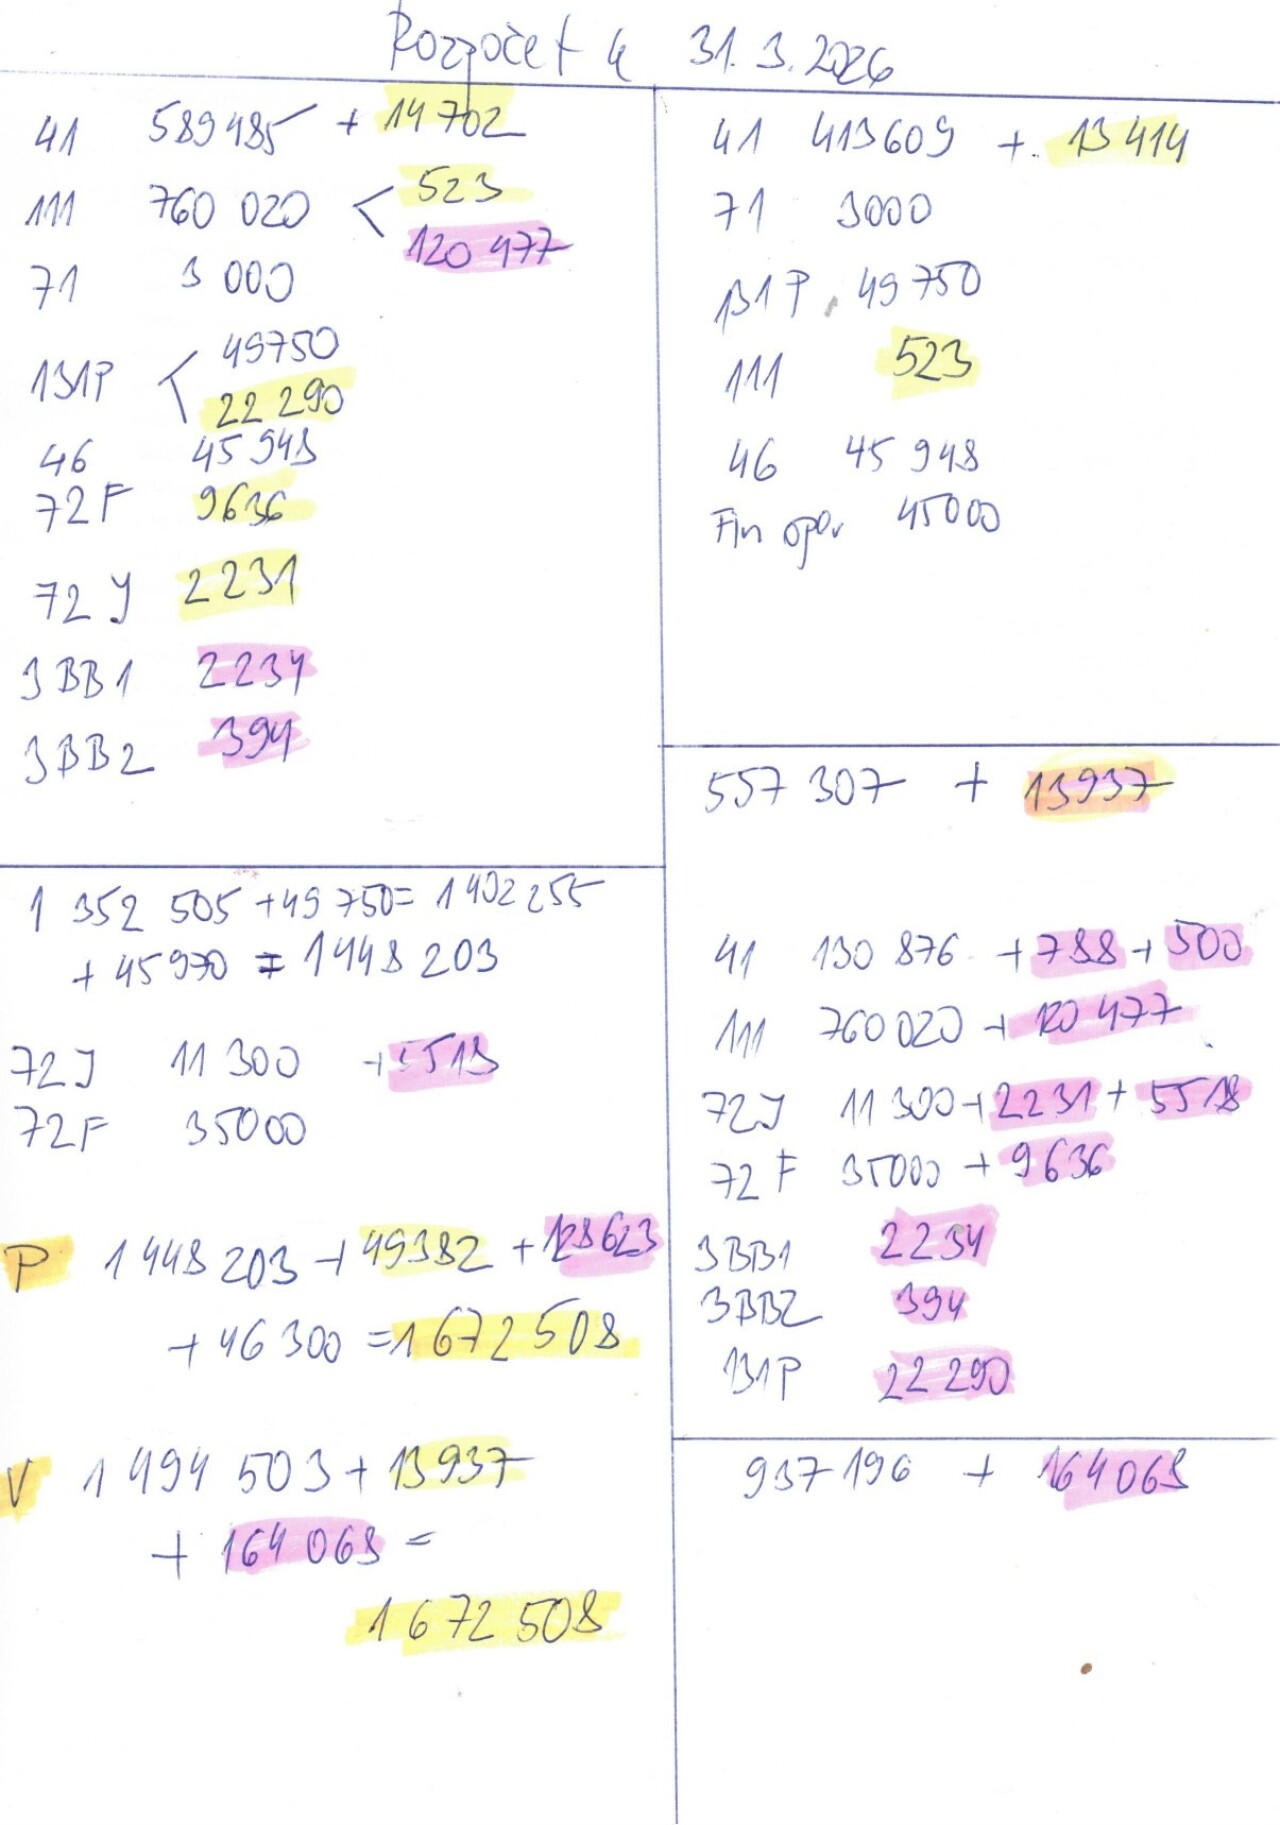 Rozpočet k 31. 3. 2026
41 589 485 + 14 702
111 760 020 < 523
120 477
71 3 000
131P < 49750
22 290
46 45 948
72F 9636
72 J 2231
3BB1 2234
3BB2 394
1 352 505 + 49 750 = 1 402 255
+ 45 970 = 1 448 203
72J 11 300 + 5518
72F 35000
P 1 448 203 + 49382 + 128623
+ 46 300 = 1 672 508
V 1 494 503 + 13937
+ 164 068 =
1 672 508
41 413609 + 13 414
71 3000
131P 49 750
111 523
46 45 948
Fin oper 45000
557 307 + 13937
41 130 876 + 788 + 500
111 760 020 + 120 477
72J 11 300 + 2231 + 5518
72 F 35000 + 9636
3BB1 2234
3BB2 394
131P 22 290
937 196 + 164068